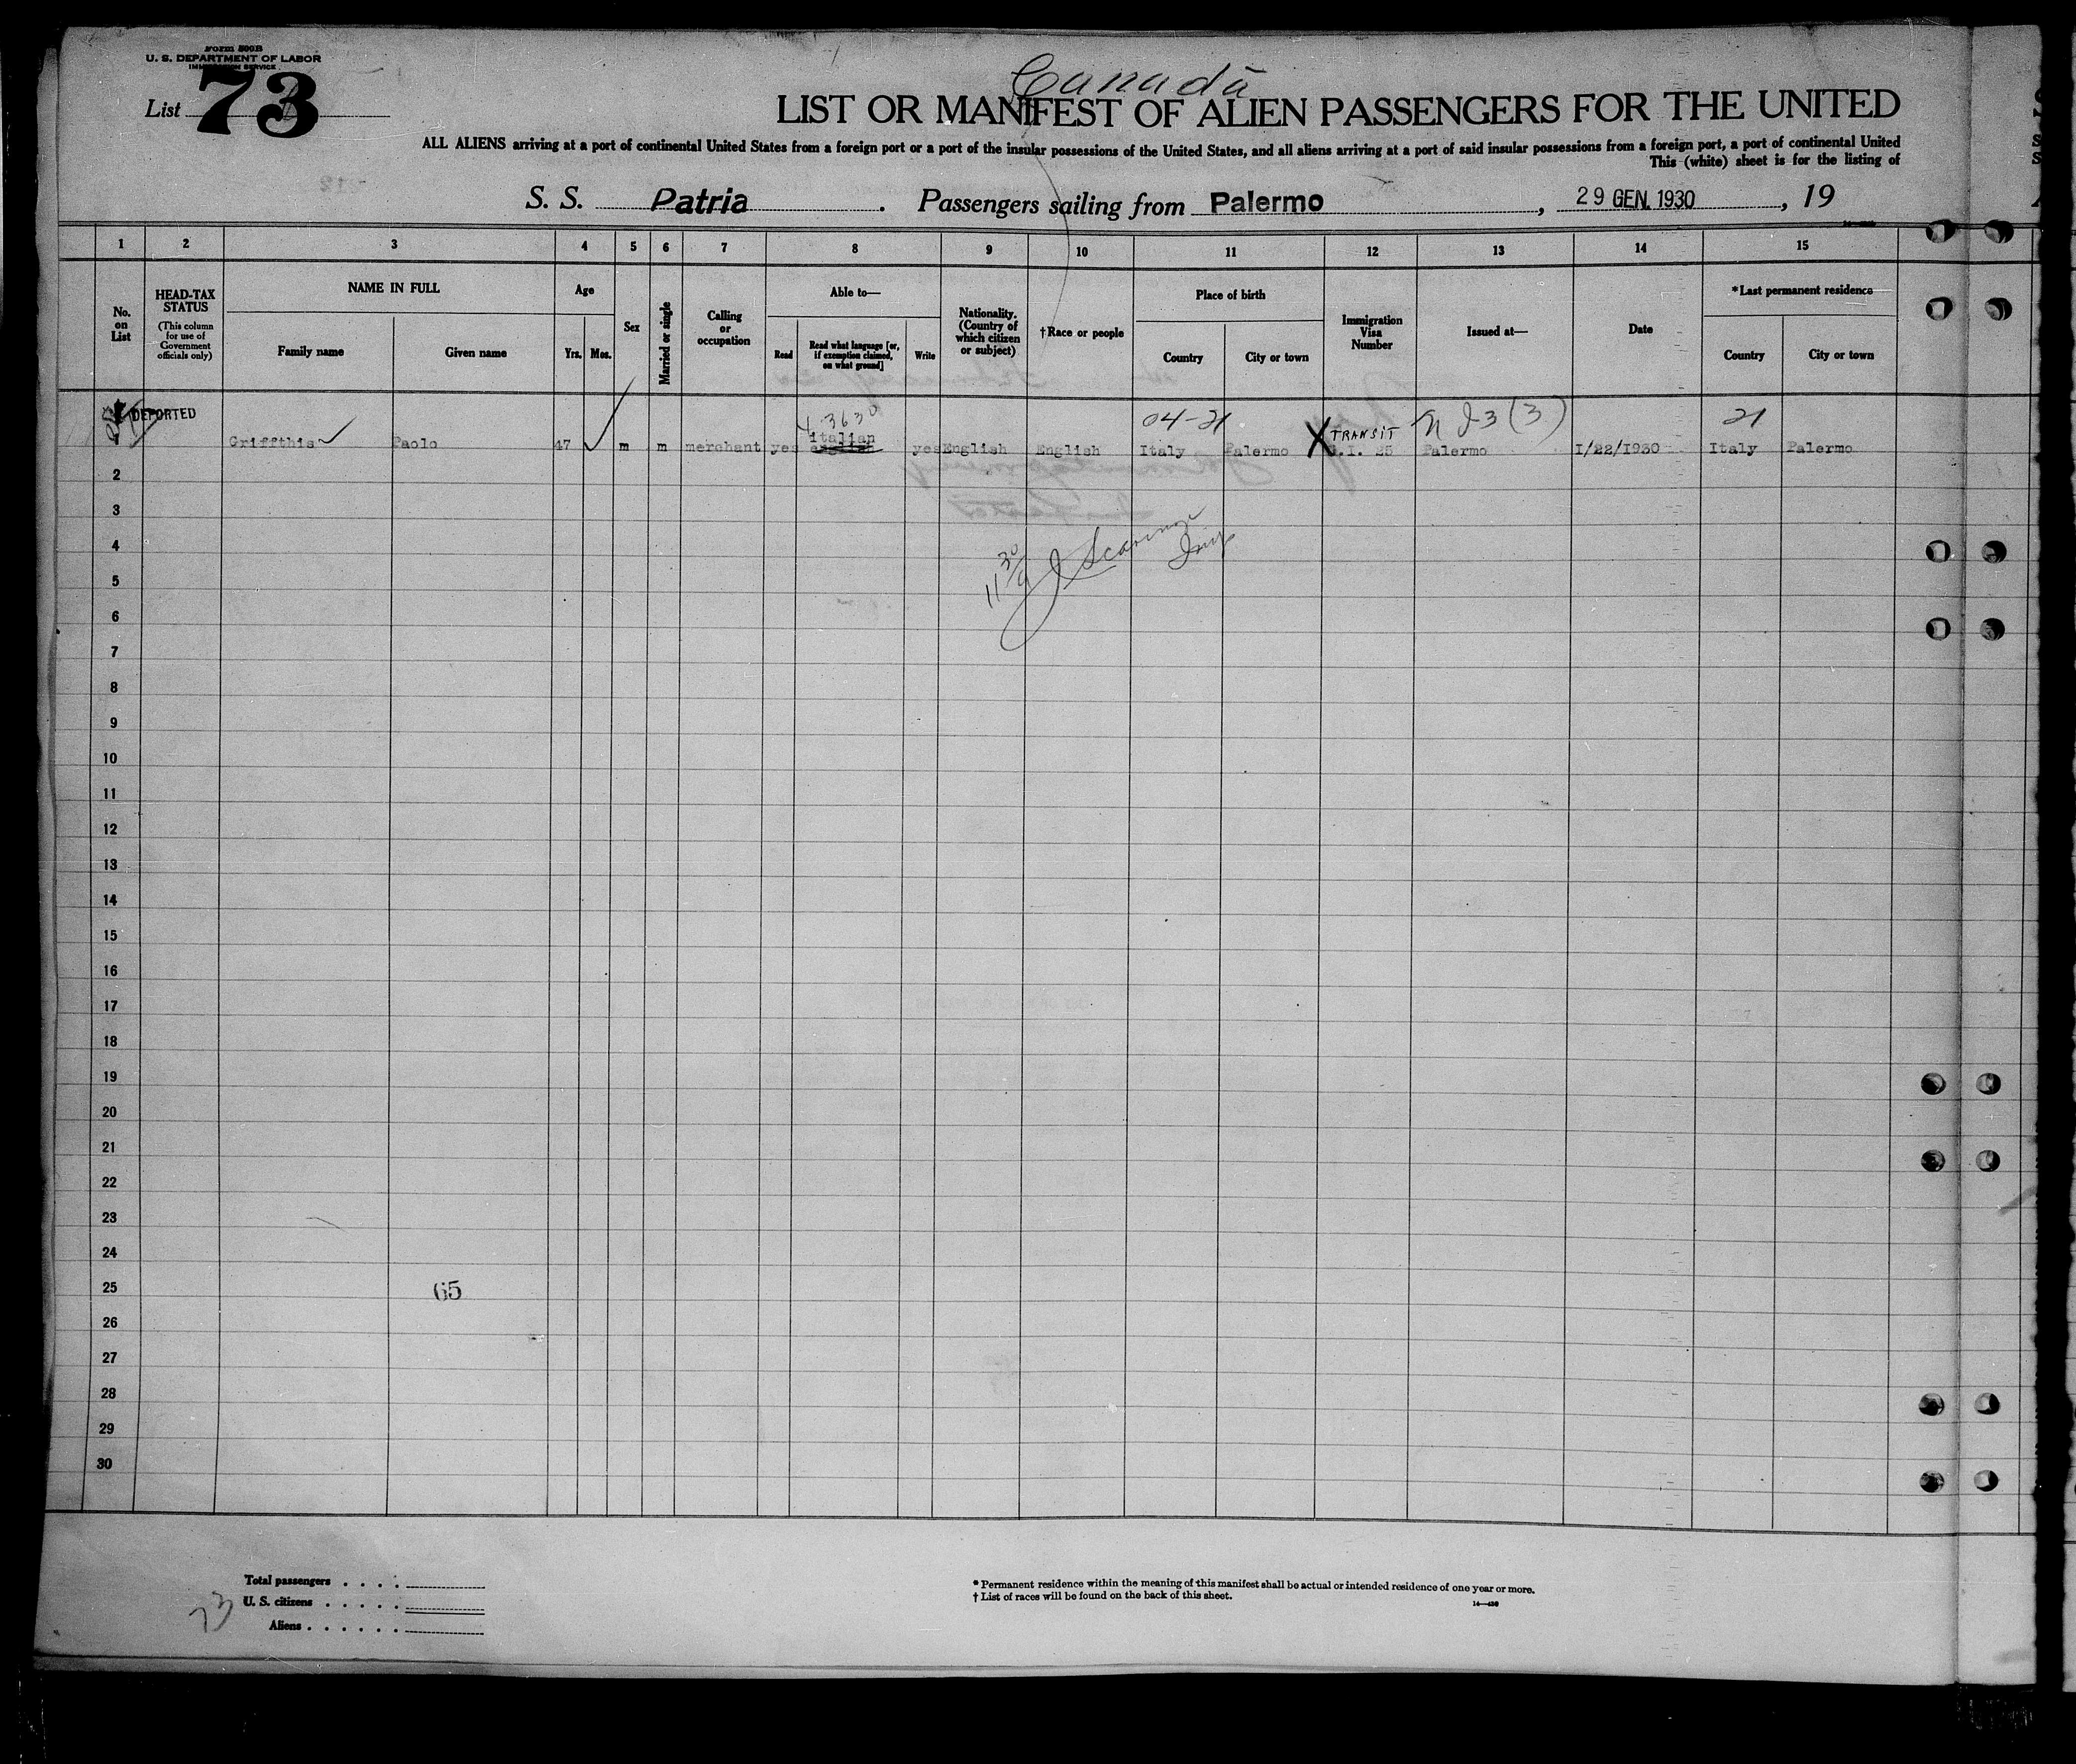 Form 500B
U. S. DEPARTMENT OF LABOR
IMMIGRATION SERVICE
List 73
Canada
LIST OR MANIFEST OF ALIEN PASSENGERS FOR THE UNITED
ALL ALIENS arriving at a port of continental United States from a foreign port or a port of the insular possessions of the United States, and all aliens arriving at a port of said insular possessions from a foreign port, a port of continental United
This (white) sheet is for the listing of
S. S. Patria. Passengers sailing from Palermo, 29 GEN. 1930, 19
1 2 3 4 5 6 7 8 9 10 11 12 13 14 15
No. on List
HEAD-TAX STATUS
(This column for use of Government officials only)
NAME IN FULL
Family name
Given name
Age
Yrs.
Mos.
Sex
Married or single
Calling or occupation
Able to—
Read
Read what language [or, if exemption claimed, on what ground]
Write
Nationality. (Country of which citizen or subject)
†Race or people
Place of birth
Country
City or town
Immigration Visa Number
Issued at—
Date
*Last permanent residence
Country
City or town
DEPORTED
04-21
TRANSIT
21
italian
Griffthis Paolo 47 m m merchant yes english yes English English Italy Palermo 25 Palermo 1/22/1930 Italy Palermo
2
3
4
5
6
7
8
9
10
11
12
13
14
15
16
17
18
19
20
21
22
23
24
25
65
26
27
28
29
30
Total passengers . . . .
U. S. citizens . . . . .
Aliens . . . . . .
73
* Permanent residence within the meaning of this manifest shall be actual or intended residence of one year or more.
† List of races will be found on the back of this sheet.